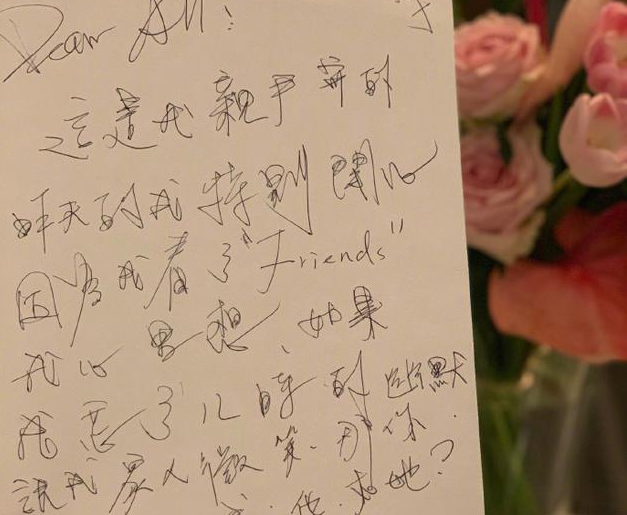 Dear All:
這是我親手的
昨天的我特別開心
因為我看了"Friends"
我心思想、如果
我忘了儿時的幽默
我眾人微笑、那你
他或她?